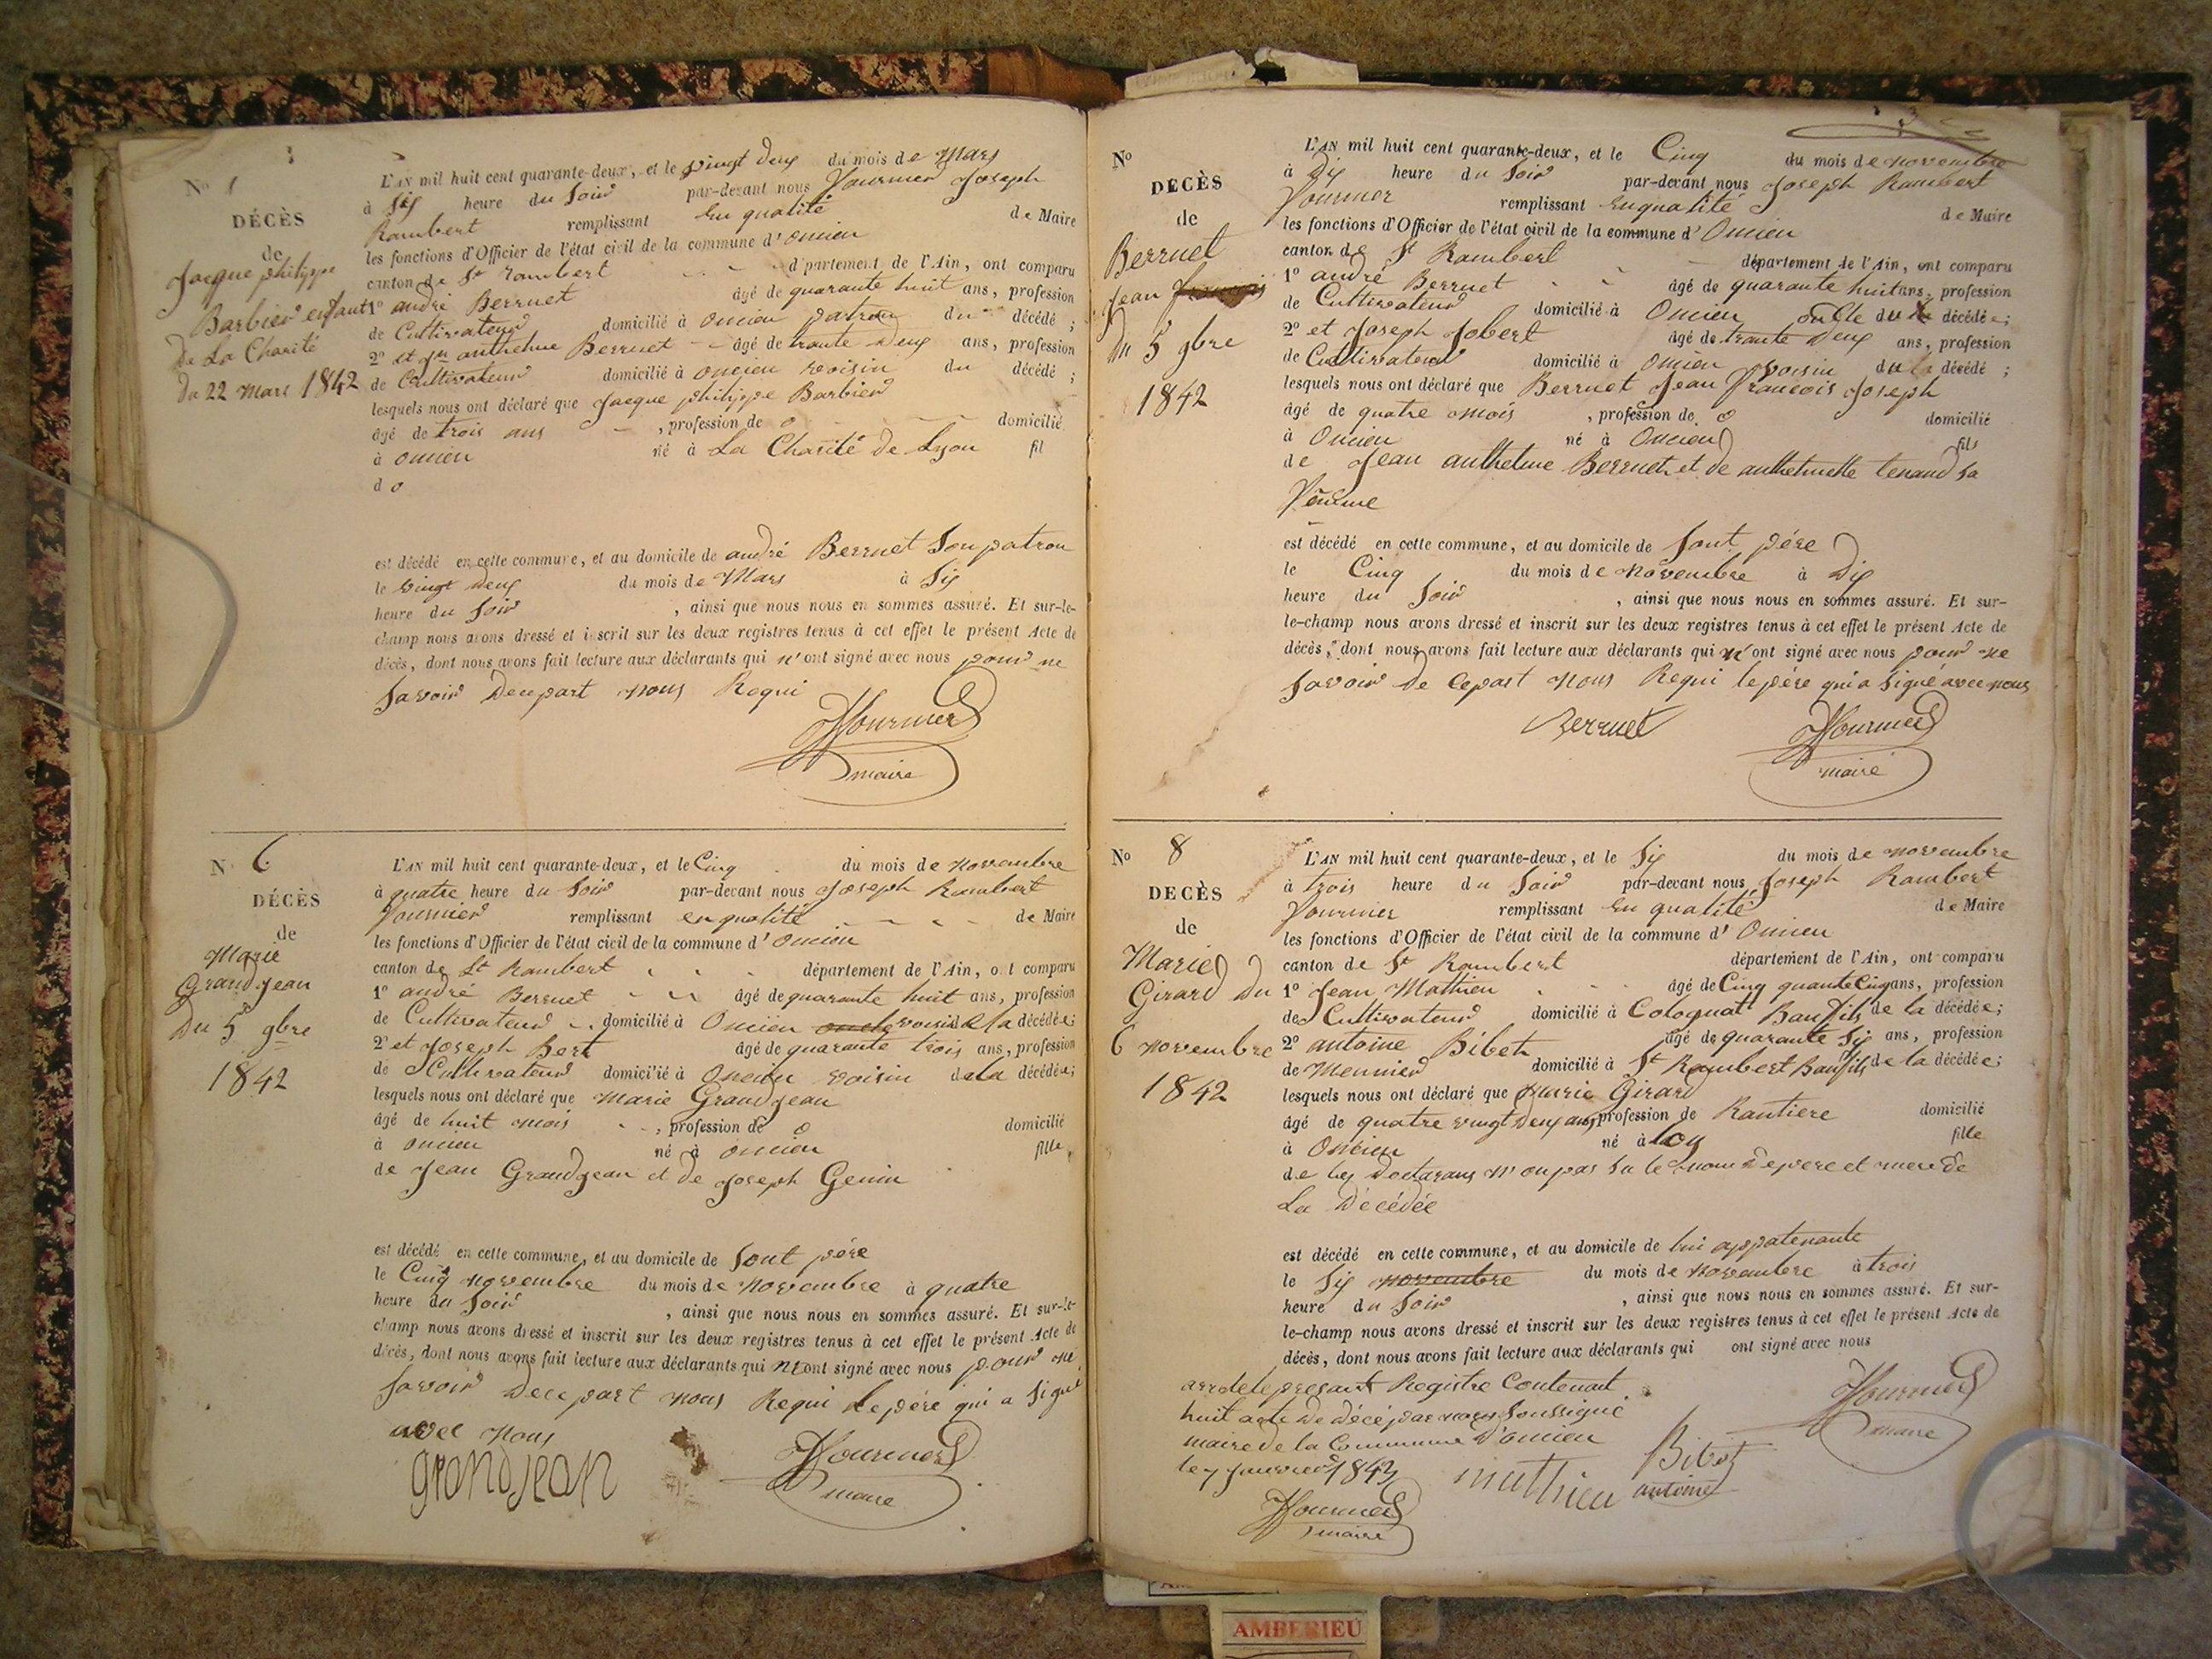 N° 1
DÉCÈS
de
Jacque philippe
Barbier enfant
De La Charité
Du 22 Mars 1842
L'AN mil huit cent quarante-deux, et le vingt deux du mois de Mars
à Six heure du Soir par-devant nous Fournier Joseph
Rambert remplissant En qualité de Maire
les fonctions d'Officier de l'état civil de la commune d'oncieu
canton de St rambert département de l'Ain, ont comparu
1° andré Berruet âgé de quarante huit ans, profession
de Cultivateur domicilié à Oncieu patron du décédé;
2° et jn anthelme Berruet âgé de trante Deux ans, profession
de Cultivateur domicilié à oncieu voisin du décédé;
lesquels nous ont déclaré que Jacque philippe Barbier
âgé de trois ans, profession de o domicilié
à oncieu né à La Charité de Lyon fil
d o
est décédé en cette commune, et au domicile de andré Berruet Son patron
le vingt deux du mois de Mars à Six
heure du Soir, ainsi que nous nous en sommes assuré. Et sur-le-
champ nous avons dressé et inscrit sur les deux registres tenus à cet effet le présent Acte de
décès, dont nous avons fait lecture aux déclarants qui n'ont signé avec nous pour ne
Savoir Decepart nous Requi
JFournier
maire
N° 6
DÉCÈS
de
Marie
Grandjean
Du 5 9bre
1842
L'AN mil huit cent quarante-deux, et le Cinq du mois de novembre
à quatre heure du Soir par-devant nous Joseph Rambert
Fournier remplissant en qualité de Maire
les fonctions d'Officier de l'état civil de la commune d'oncieu
canton de St Rambert département de l'Ain, ont comparu
1° andré Berruet âgé de quarante huit ans, profession
de Cultivateur domicilié à Oncieu oncle voisin de la décédée;
2° et Joseph Bert âgé de quarante trois ans, profession
de Cultivateur domicilié à Oncieu voisin de la décédée;
lesquels nous ont déclaré que Marie Grandjean
âgé de huit mois, profession de o domicilié
à oncieu né à oncieu fille
de Jean Grandjean et de Joseph Genin
est décédé en cette commune, et au domicile de Sont père
le Cinq novembre du mois de novembre à quatre
heure du Soir, ainsi que nous nous en sommes assuré. Et sur-le-
champ nous avons dressé et inscrit sur les deux registres tenus à cet effet le présent Acte de
décès, dont nous avons fait lecture aux déclarants qui n'ont signé avec nous pour ne
Savoir Decepart nous Requi le père qui a Signé
avec nous
grandjean
JFournier
maire
N°
DÉCÈS
de
Berruet
Jean
Du 5 9bre
1842
L'AN mil huit cent quarante-deux, et le Cinq du mois de novembre
à Dix heure du Soir par-devant nous Joseph Rambert
Fournier remplissant En qualité de Maire
les fonctions d'Officier de l'état civil de la commune d'Oncieu
canton de St Rambert département de l'Ain, ont comparu
1° andré Berruet âgé de quarante huit ans, profession
de Cultivateur domicilié à Oncieu du décédé;
2° et Joseph Jobert âgé de trante Deux ans, profession
de Cultivateur domicilié à Oncieu voisin du décédé;
lesquels nous ont déclaré que Berruet Jean francois Joseph
âgé de quatre mois, profession de o domicilié
à Oncieu né à Oncieu fils
de Jean anthelme Berruet et de anthelmette tenand Sa
Femme
est décédé en cette commune, et au domicile de Sont père
le Cinq du mois de Novembre à Dix
heure du Soir, ainsi que nous nous en sommes assuré. Et sur-
le-champ nous avons dressé et inscrit sur les deux registres tenus à cet effet le présent Acte de
décès, dont nous avons fait lecture aux déclarants qui n'ont signé avec nous pour ne
Savoir De cepart nous Requi le père qui a Signé avec nous
Berruet
JFournier
maire
N° 8
DÉCÈS
de
Marie
Girard Du
6 novembre
1842
L'AN mil huit cent quarante-deux, et le Six du mois de novembre
à trois heure du Soir par-devant nous Joseph Rambert
Fournier remplissant En qualité de Maire
les fonctions d'Officier de l'état civil de la commune d'Oncieu
canton de St Rambert département de l'Ain, ont comparu
1° Jean Mathieu âgé de Cinq quante Cinq ans, profession
de Cultivateur domicilié à Colognat Baufils de la décédée;
2° antoine Bibet âgé de quarante Six ans, profession
de Meunier domicilié à St Rambert Baufils de la décédée;
lesquels nous ont déclaré que Marie Girard
âgé de quatre vingt Deux ans, profession de Rantiere domicilié
à Oncieu né à fille
de les Declarans n'on pas Su le nom de pere et mere de
La Décédée
est décédé en cette commune, et au domicile de lui appatenante
le Six novembre du mois de novembre à trois
heure du Soir, ainsi que nous nous en sommes assuré. Et sur-
le-champ nous avons dressé et inscrit sur les deux registres tenus à cet effet le présent Acte de
décès, dont nous avons fait lecture aux déclarants qui ont signé avec nous
arrete le presant Registre Contenant
huit acte de décé par nous Soussigné
maire de la Commune d'oncieu
le 7 Janvier 1843
JFournier
maire
mathieu
Bibet
antoine
JFournier
maire
AMBERIEU